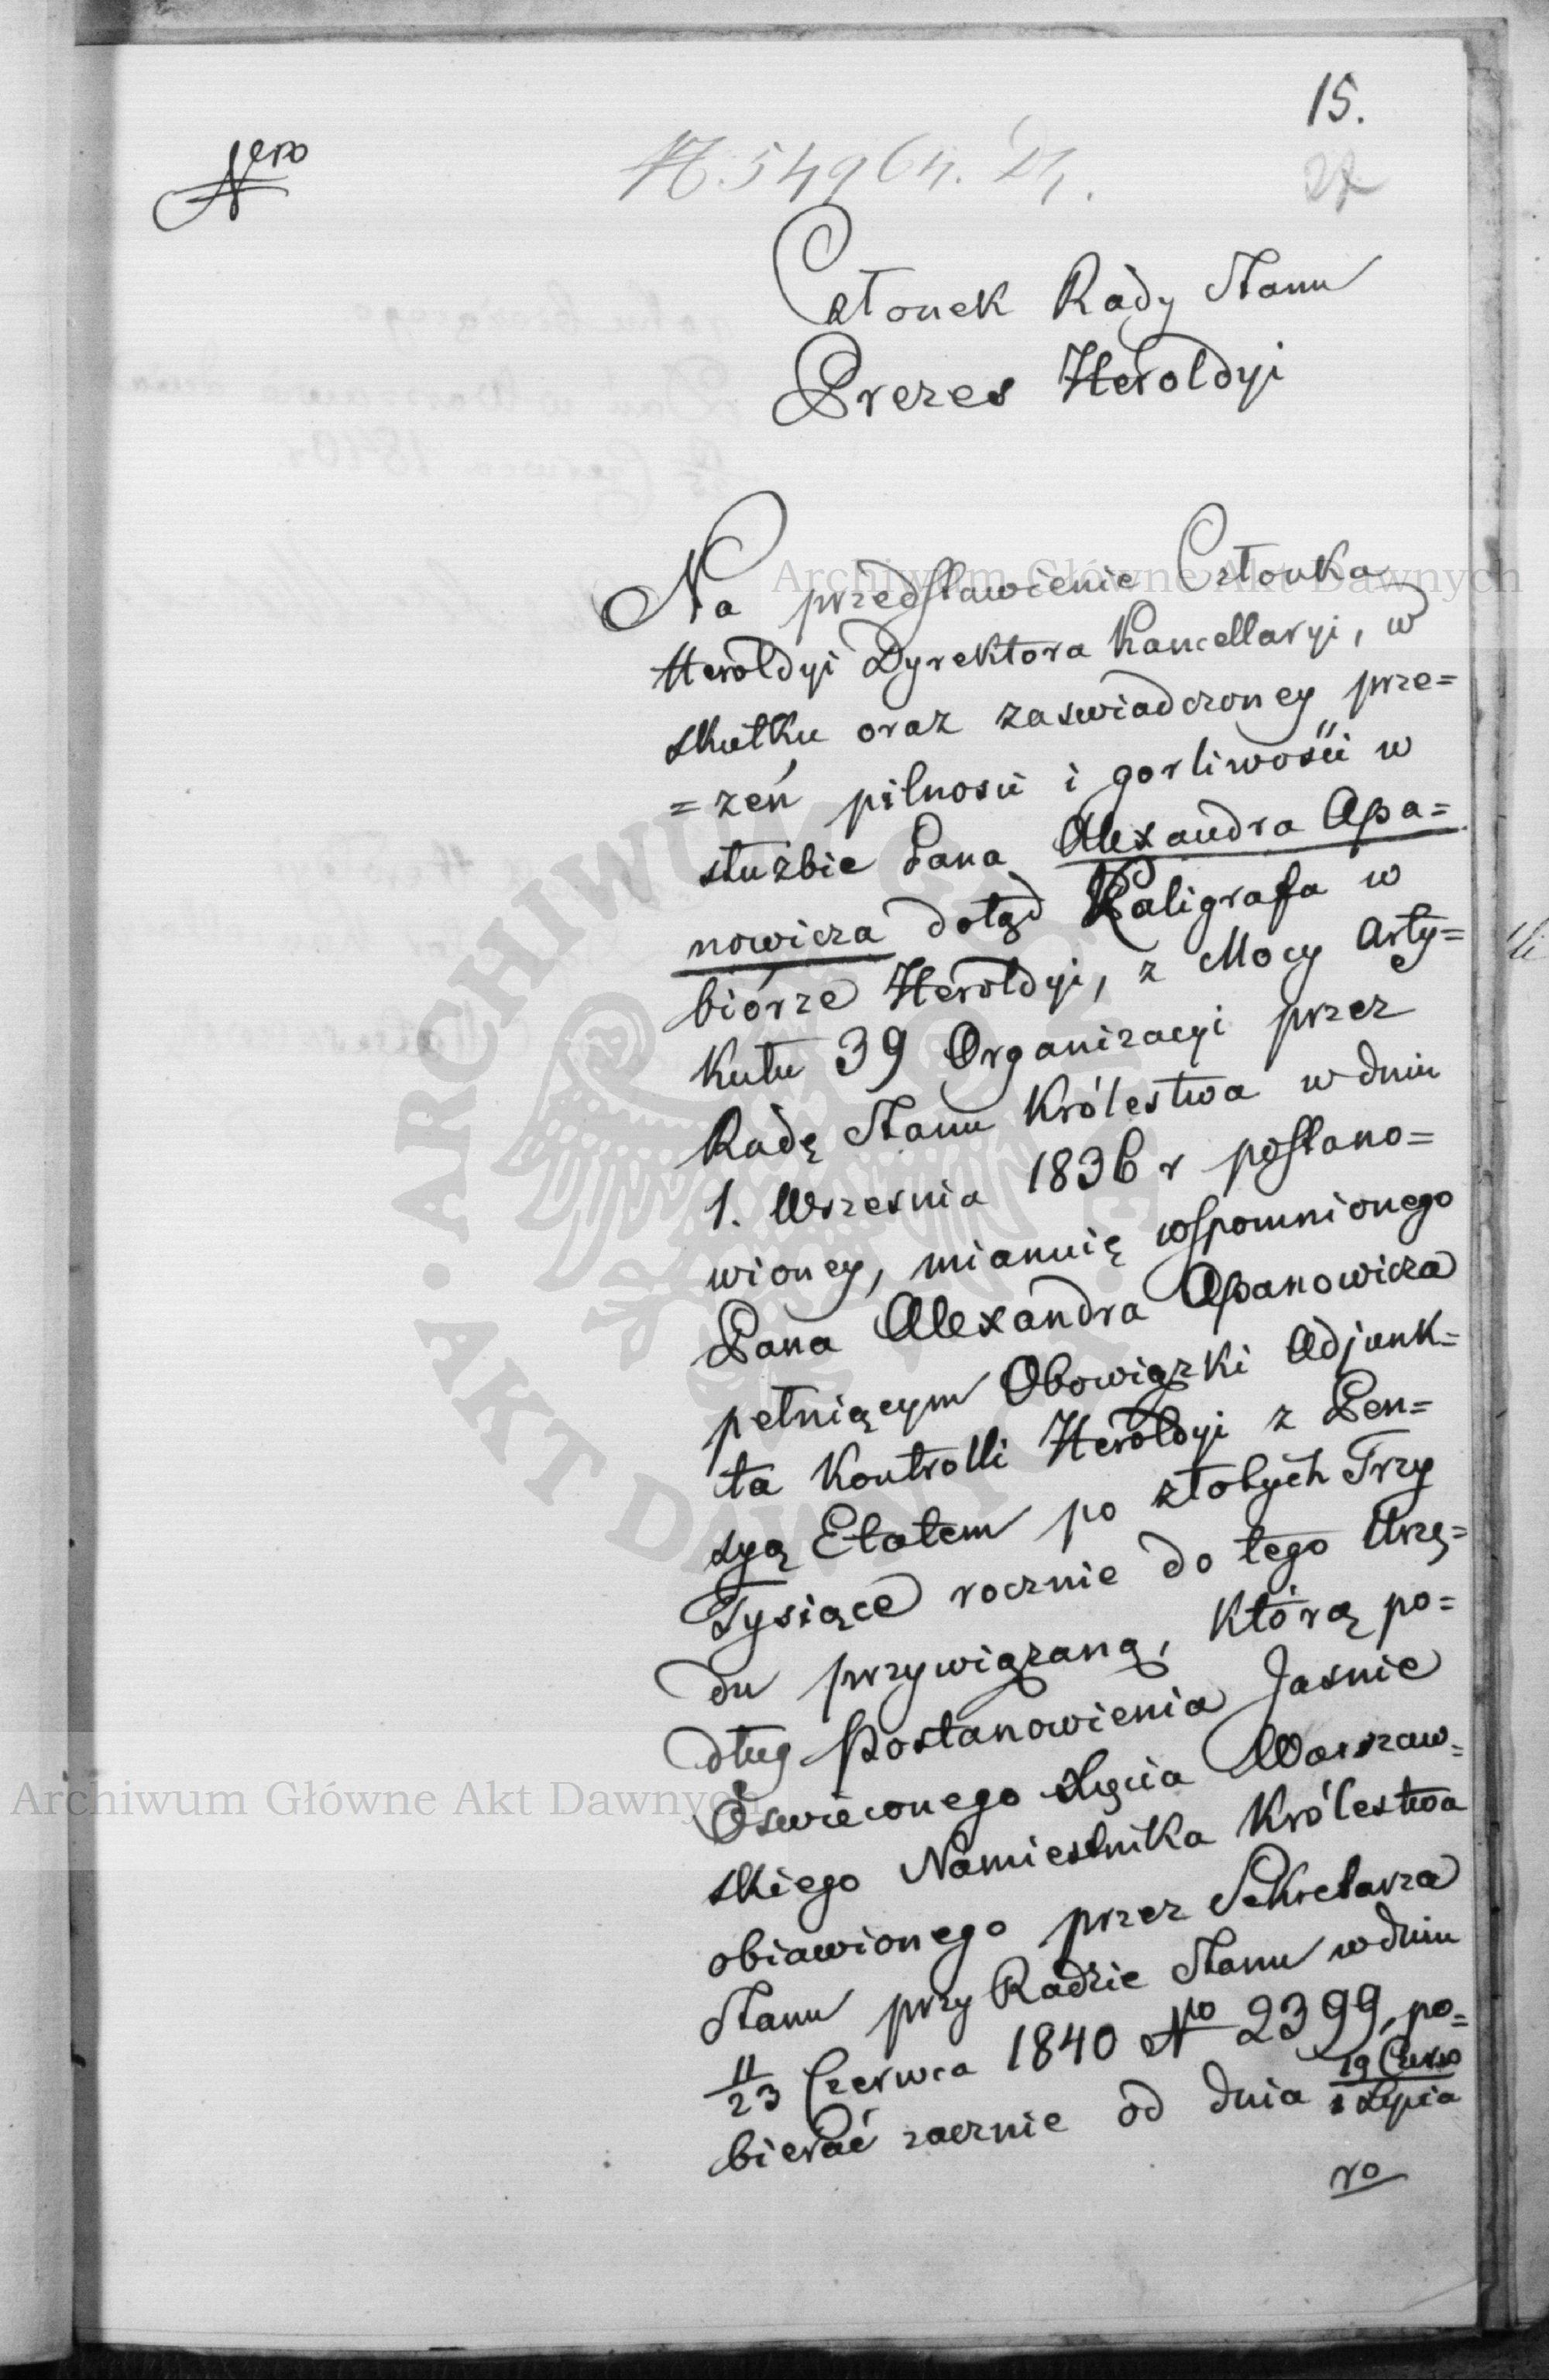 15.
Nero
N 54964.
22
Członek Rady Stanu
Prezes Heroldyi
Na przedstawienie Członka
Heroldyi Dyrektora Kancellaryi, w
skutku oraz zaswiadczoney prze=
=zeń pilnosci i gorliwości w
służbie Pana Alexandra Apa=
nowicza dotąd Kaligrafa w
biórze Heroldyi, z Mocy Arty=
kułu 39 Organizacyi przez
Radę Stanu Królestwa w dniu
1. Wrzesnia 1836 r postano=
wioney, mianuię wspomnionego
Pana Alexandra Apanowicza
pełniącym Obowiązki Adjunk=
ta Kontrolli Heroldyi z Pen=
syą Etatem po złotych Trzy
Tysiące rocznie do tego Urzę=
du przywiązaną, którą po=
dług Postanowienia Jasnie
Oswieconego Xięcia Warszaw=
skiego Namiestnika Królestwa
obiawionego przez Sekretarza
Stanu przy Radzie Stanu w dniu
11/23 Czerwca 1840 No 2399, po=
bierać zacznie od dnia 19 Czerw/1 Lipca
ro
Archiwum Główne Akt Dawnych
Archiwum Główne Akt Dawnych
ARCHIWUM GŁÓWNE AKT DAWNYCH